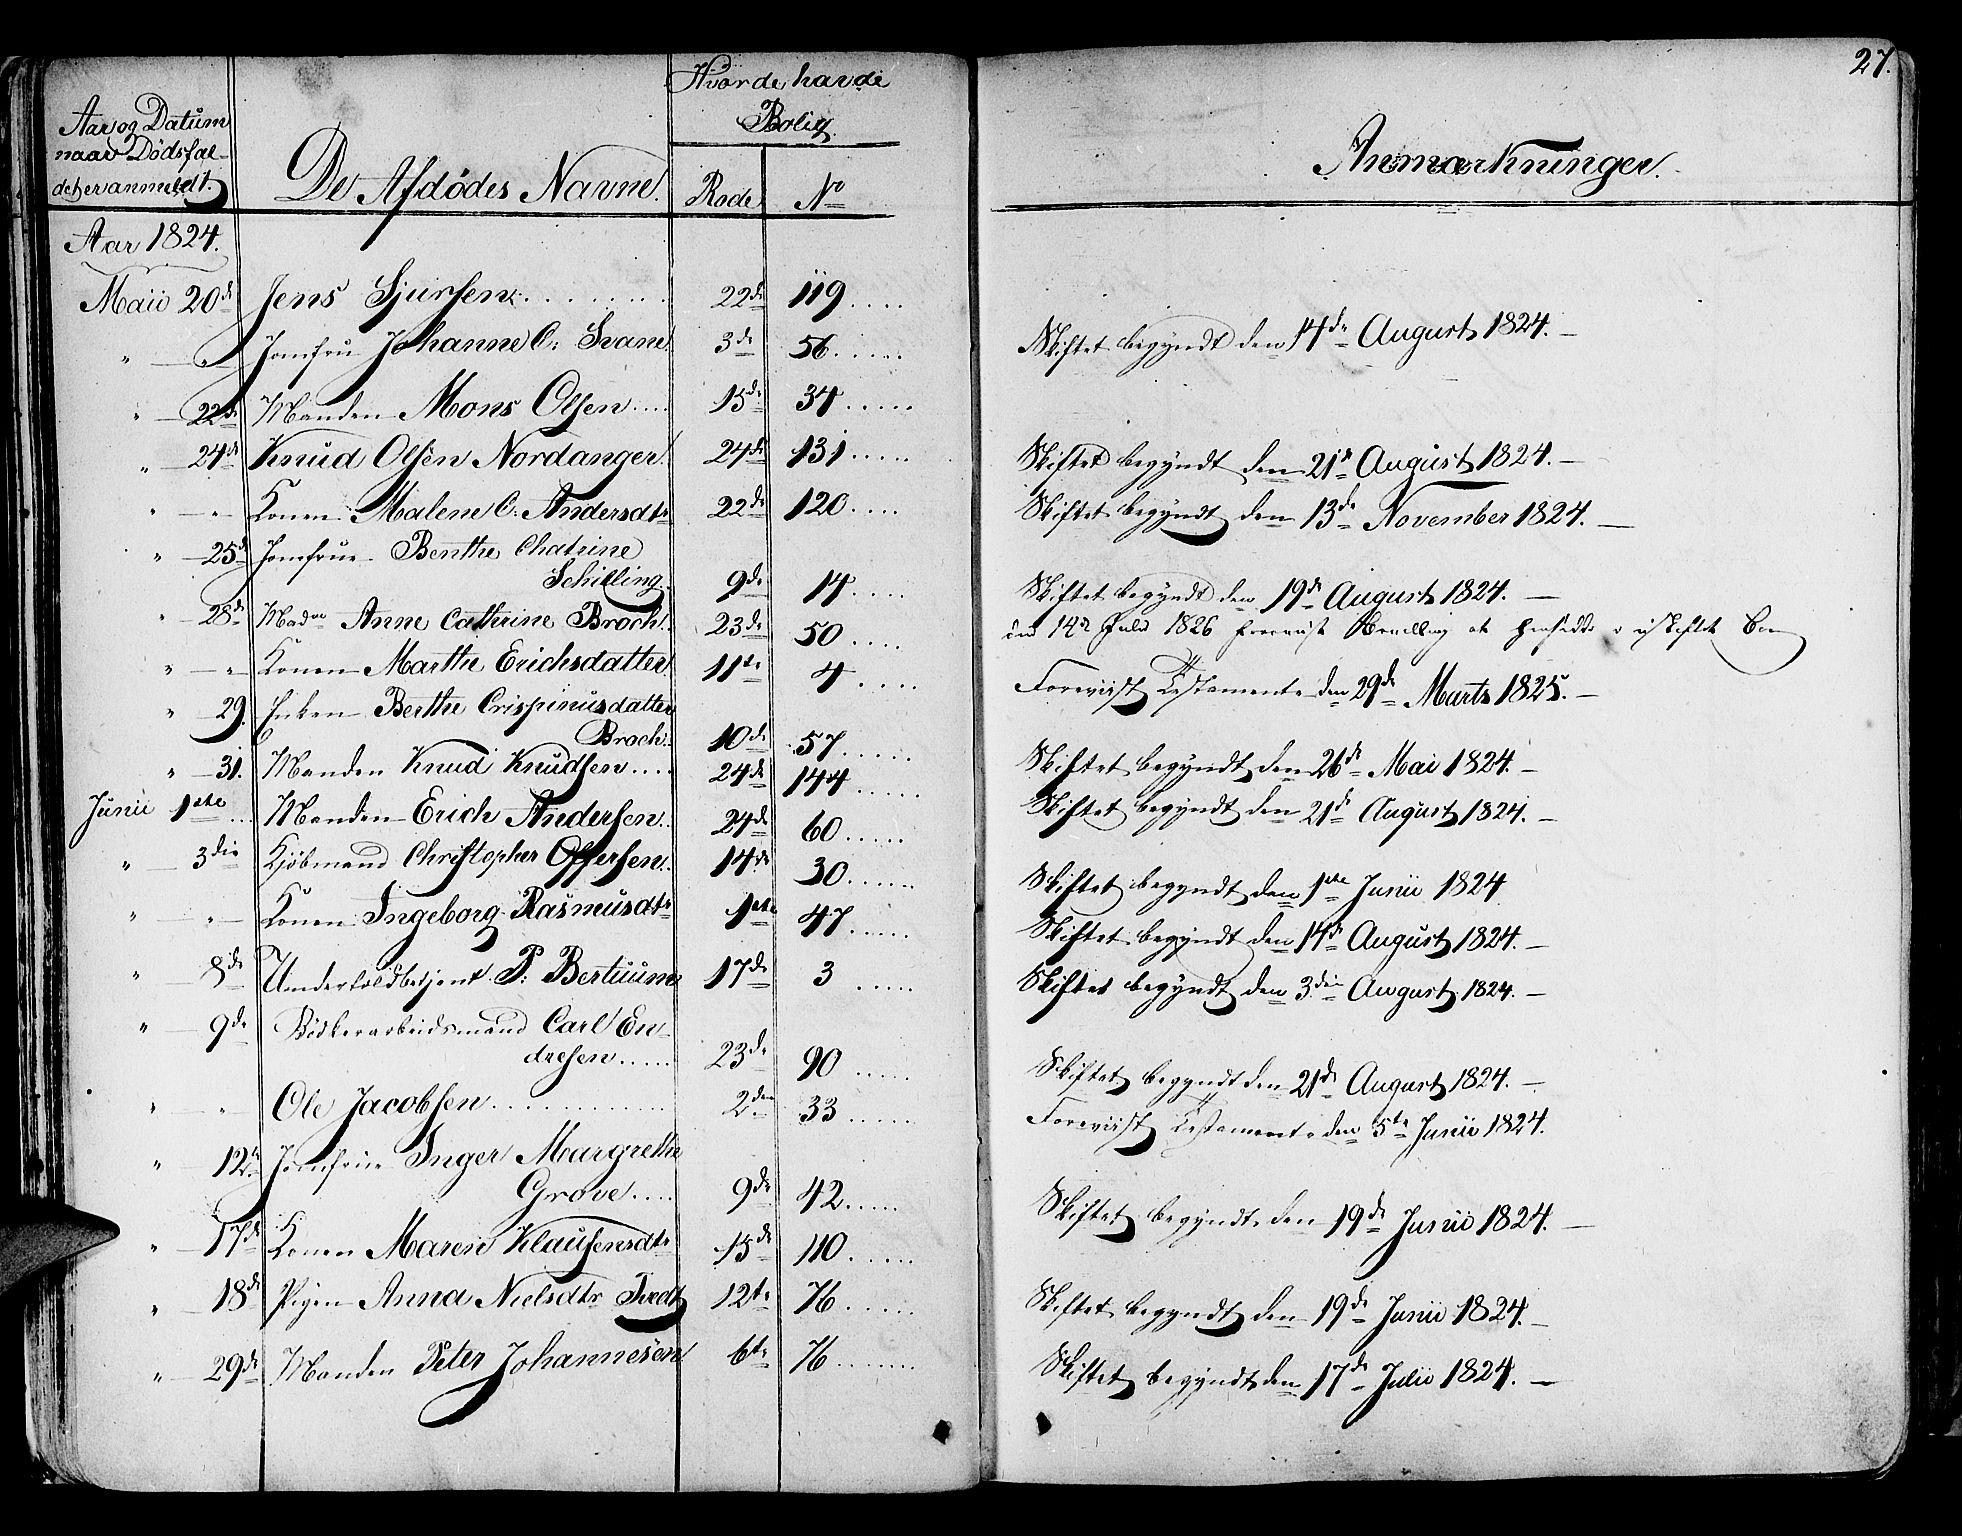 27.
Aar og Datum
naar Dødsfal-
det er anmeldt.
De Afdødes Navne.
Hvor de havde
Bolig.
Rode No
Anmærkninger.
Aar 1824.
Maii 20de Jens Sjursen. 22de 119
" — " Jomfru Johanne C: Svane 3de 56 Skiftet begyndt den 14de August 1824.
" — 22de Manden Mons Olsen 15de 34
" — 24de Knud Olsen Nordanger. 24de 131 Skiftet begyndt den 21de August 1824.
" — " Konen Malene C: Andersdtr 22de 120 Skiftet begyndt den 13de November 1824.
" — 25de Jomfrue Benthe Chatrine
Schilling. 9de 14 Skiftet begyndt den 19de August 1824.
" — 28de Madme Anne Cathrine Broch. 23de 50 den 14de Julii 1826 foreviist Bevilling at hensidde i uskiftet Boe
" — " Konen Marthe Erichsdatter. 11te 4 Foreviist Testamente den 29de Marts 1825.
" — 29. Enken Berthe Crispinusdatter
Broch. 10de 57 Skiftet begyndt den 26de Mai 1824.
" — 31. Manden Knud Knudsen 24de 144 Skiftet begyndt den 21de August 1824.
Junii 1ste Manden Erich Andersen. 24de 60
" — 3die Kjøbmand Christopher Offersen. 14de 30 Skiftet begyndt den 1ste Junii 1824
" — " Konen Ingeborg Rasmusdtr 1ste 47 Skiftet begyndt den 14de August 1824.
" — 8de Undertoldbetjent P: Bertuum 17de 3 Skiftet begyndt den 3die August 1824.
" — 9de Bødkerarbeidsmand Carl En-
dresen 23de 90 Skiftet begyndt den 21de August 1824.
" — " Ole Jacobsen 2den 33 Foreviist Testamente den 5te Junii 1824.
" — 12te Jomfrue Inger Margrethe
Grove 9de 42 Skiftet begyndt den 19de Junii 1824.
" — 17de Konen Maren Klausensdtr 15de 110
" — 18de Pigen Anna Nielsdtr Tvedt 12te 76 Skiftet begyndt den 19de Junii 1824.
" — 29de Manden Peter Johannesen 6te 76 Skiftet begyndt den 17de Julii 1824.